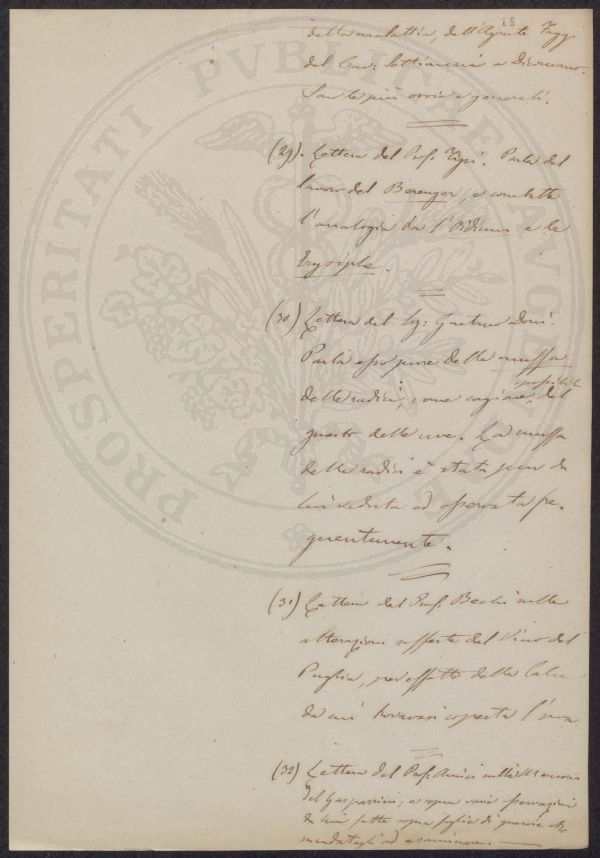 18
della malattia, dell'Agente
del Cav: a Dicomano.
Sono le più ovvie e generali.
(29). Lettera del Prof. Tigri. Parla del
lavoro del Berenger, e combatte
l'analogia fra l'Oidium e le
Erysiphe.
(30) Lettera del Sig: Gaetano Doni.
Parla esso pure della muffa
delle radici, come cagione possibile del
guasto delle uve. La muffa
delle radici è stata pure da
lui veduta ed osservata fre-
quentemente.
(31) Lettera del Prof. Bechi sulle
alterazioni sofferte dal Vino del
Puglia, per effetto della Calce
da cui trovavasi coperta l'uva
(32) Lettera del Prof. Amici sulla Memoria
del Gasparrini, e sopra varie osservazioni
da lui fatte sopra foglie di quercia
mandategli ad esaminare.
PROSPERITATI PVBLICAE AVGENDAE